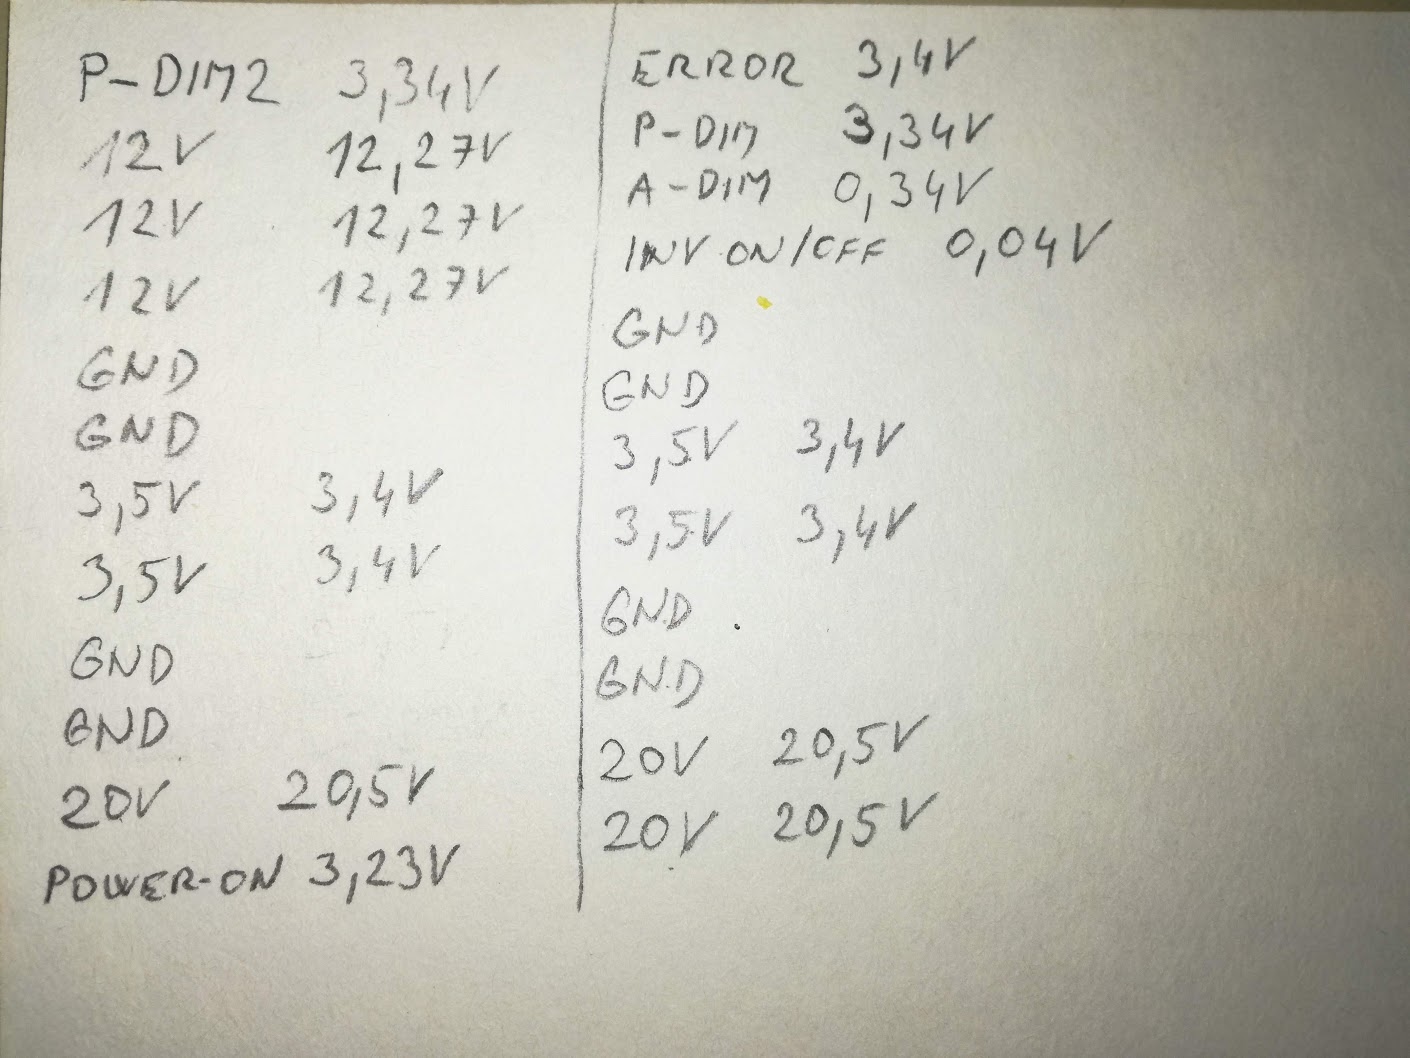 P-DIM2 3,34V
12V 12,27V
12V 12,27V
12V 12,27V
GND
GND
3,5V 3,4V
3,5V 3,4V
GND
GND
20V 20,5V
POWER-ON 3,23V
ERROR 3,4V
P-DIM 3,34V
A-DIM 0,34V
INV ON/OFF 0,04V
GND
GND
3,5V 3,4V
3,5V 3,4V
GND
GND
20V 20,5V
20V 20,5V